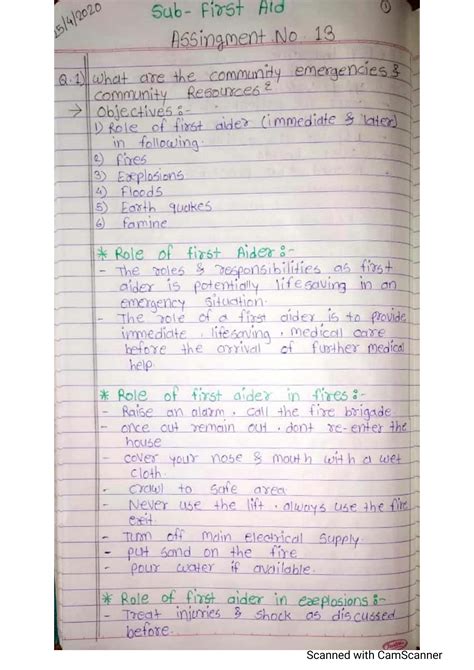 15/4/2020
Sub- First Aid
1
Assingment No. 13
Q.1) What are the community emergencies &
community Resources?
→ Objectives :-
1) Role of first aider (immediate & later)
in following.
2) fires
3) Explosions
4) Floods
5) Earth quakes
6) famine
* Role of first Aider :-
- The roles & responsibilities as first
aider is potentially lifesaving in an
emergency situation.
- The role of a first aider is to provide
immediate, lifesaving, medical care
before the arrival of further medical
help.
* Role of first aider in fires :-
- Raise an alarm. call the fire brigade.
- once out remain out. dont re-enter the
house
- cover your nose & mouth with a wet
cloth.
- Crawl to safe area
- Never use the lift. always use the fire
exit.
- Turn off main electrical supply.
- put sand on the fire
- pour water if available.
* Role of first aider in exeplosions :-
- Treat injuries & shock as discussed
before.
Scanned with CamScanner